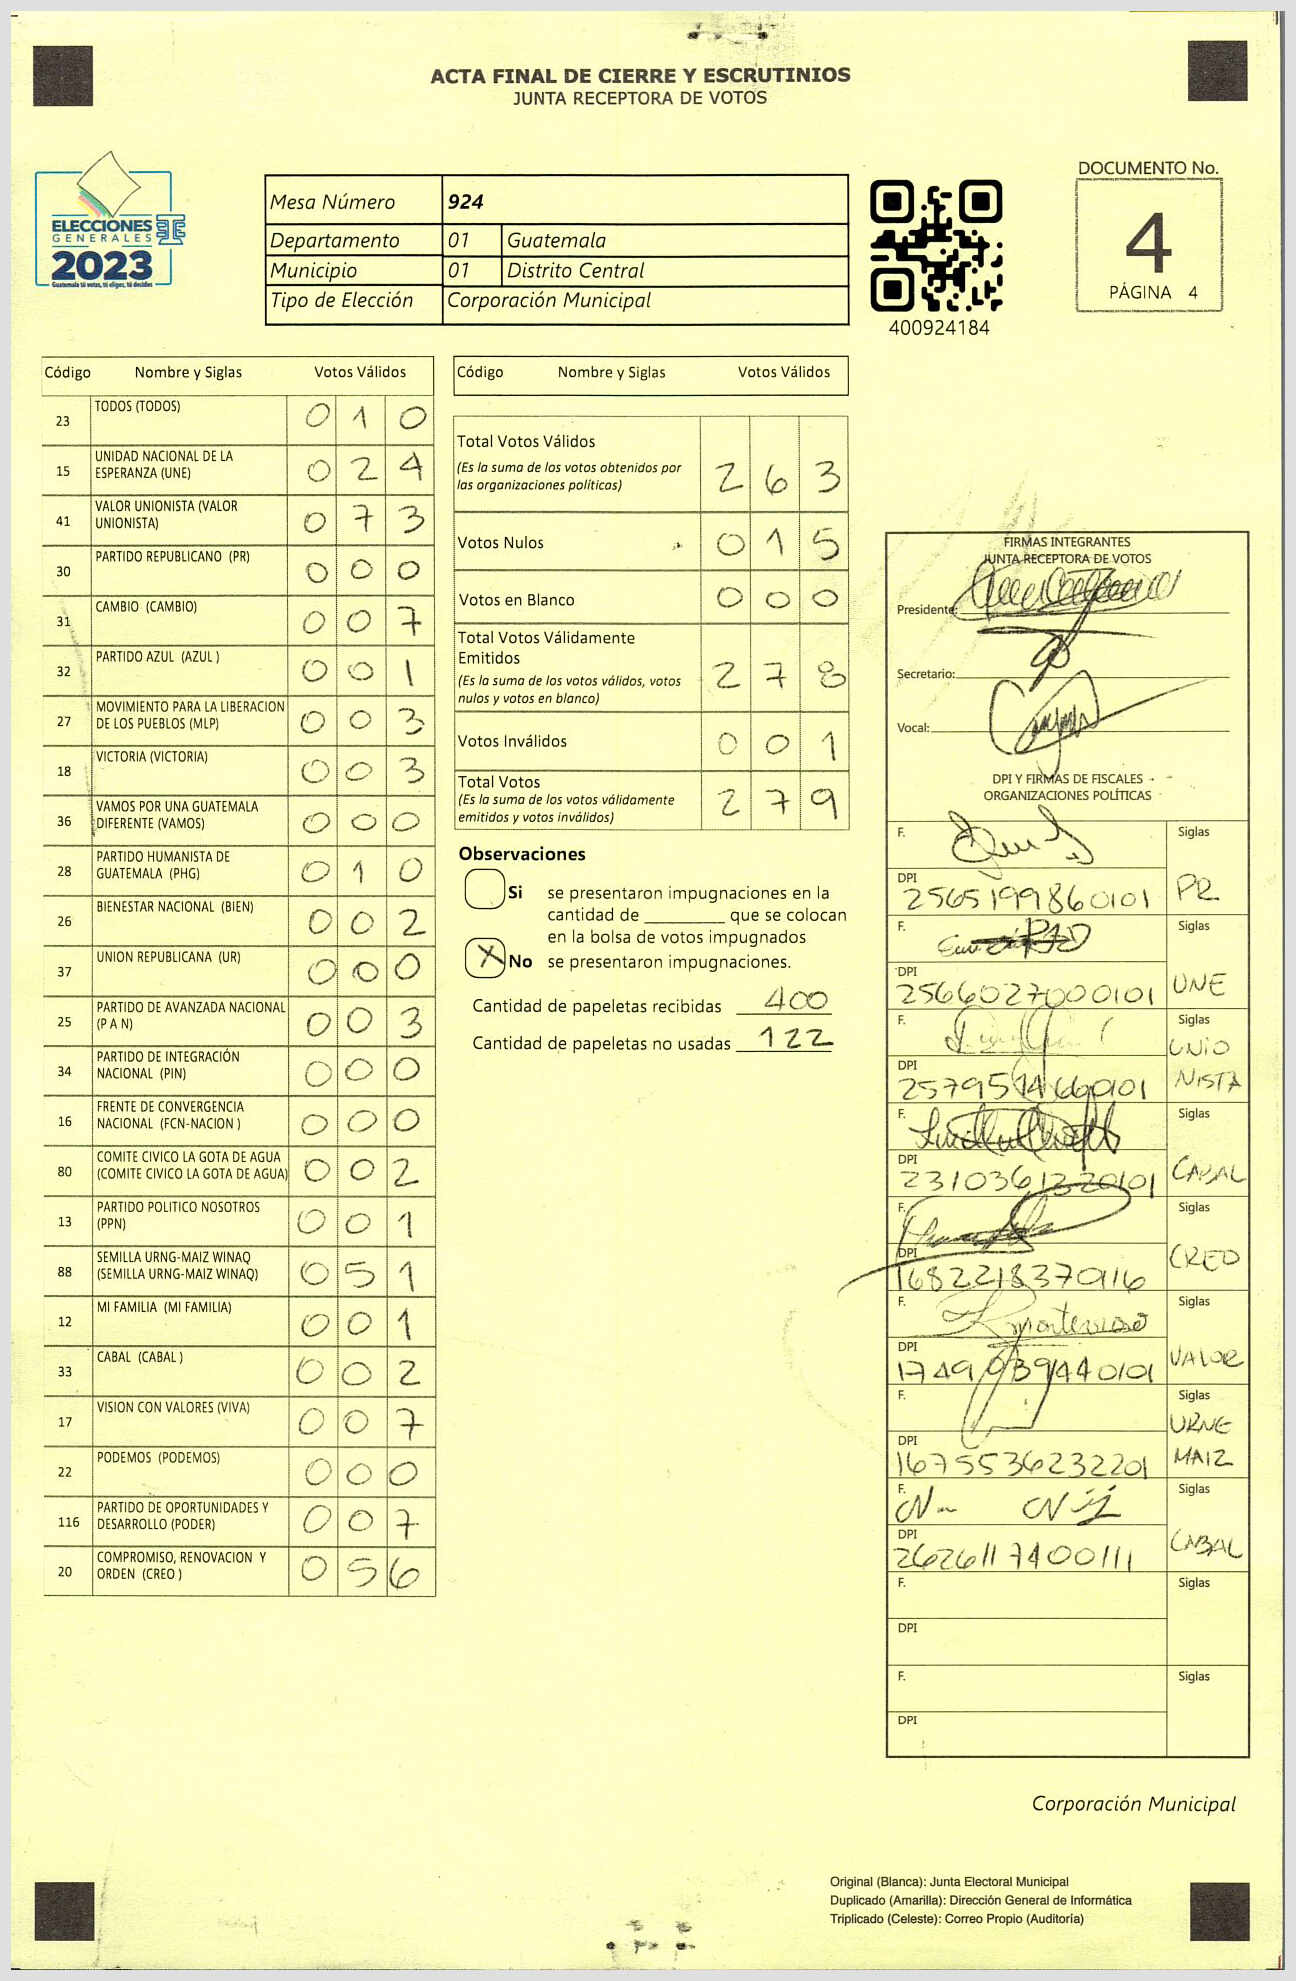 ACTA FINAL DE CIERRE Y ESCRUTINIOS
JUNTA RECEPTORA DE VOTOS
ELECCIONES
GENERALES
2023
Guatemala tú votas, tú eliges, tú decides
Mesa Número 924
Departamento 01 Guatemala
Municipio 01 Distrito Central
Tipo de Elección Corporación Municipal
400924184
DOCUMENTO No.
4
PÁGINA 4
Código Nombre y Siglas Votos Válidos
23 TODOS (TODOS) 0 1 0
15 UNIDAD NACIONAL DE LA ESPERANZA (UNE) 0 2 4
41 VALOR UNIONISTA (VALOR UNIONISTA) 0 7 3
30 PARTIDO REPUBLICANO (PR) 0 0 0
31 CAMBIO (CAMBIO) 0 0 7
32 PARTIDO AZUL (AZUL ) 0 0 1
27 MOVIMIENTO PARA LA LIBERACION DE LOS PUEBLOS (MLP) 0 0 3
18 VICTORIA (VICTORIA) 0 0 3
36 VAMOS POR UNA GUATEMALA DIFERENTE (VAMOS) 0 0 0
28 PARTIDO HUMANISTA DE GUATEMALA (PHG) 0 1 0
26 BIENESTAR NACIONAL (BIEN) 0 0 2
37 UNION REPUBLICANA (UR) 0 0 0
25 PARTIDO DE AVANZADA NACIONAL (P A N) 0 0 3
34 PARTIDO DE INTEGRACIÓN NACIONAL (PIN) 0 0 0
16 FRENTE DE CONVERGENCIA NACIONAL (FCN-NACION ) 0 0 0
80 COMITE CIVICO LA GOTA DE AGUA (COMITE CIVICO LA GOTA DE AGUA) 0 0 2
13 PARTIDO POLITICO NOSOTROS (PPN) 0 0 1
88 SEMILLA URNG-MAIZ WINAQ (SEMILLA URNG-MAIZ WINAQ) 0 5 1
12 MI FAMILIA (MI FAMILIA) 0 0 1
33 CABAL (CABAL ) 0 0 2
17 VISION CON VALORES (VIVA) 0 0 7
22 PODEMOS (PODEMOS) 0 0 0
116 PARTIDO DE OPORTUNIDADES Y DESARROLLO (PODER) 0 0 7
20 COMPROMISO, RENOVACION Y ORDEN (CREO ) 0 5 6
Código Nombre y Siglas Votos Válidos
Total Votos Válidos
(Es la suma de los votos obtenidos por
las organizaciones políticas) 2 6 3
Votos Nulos 0 1 5
Votos en Blanco 0 0 0
Total Votos Válidamente
Emitidos
(Es la suma de los votos válidos, votos
nulos y votos en blanco) 2 7 8
Votos Inválidos 0 0 1
Total Votos
(Es la suma de los votos válidamente
emitidos y votos inválidos) 2 7 9
Observaciones
Si se presentaron impugnaciones en la
cantidad de ________ que se colocan
en la bolsa de votos impugnados
X No se presentaron impugnaciones.
Cantidad de papeletas recibidas 400
Cantidad de papeletas no usadas 122
FIRMAS INTEGRANTES
JUNTA RECEPTORA DE VOTOS
Presidente:
Secretario:
Vocal:
DPI Y FIRMAS DE FISCALES
ORGANIZACIONES POLÍTICAS
F. Siglas
DPI 2565199860101 PR
F. Siglas
DPI 2566027000101 UNE
F. Siglas
DPI 2579514660101 UNIO
NISTA
F. Siglas
DPI 2310361320101 CABAL
F. Siglas
DPI 1682218370916 CREO
F. Siglas
DPI 1749039440101 VALOR
F. Siglas
URNE
DPI 1675536232201 MAIZ
F. Siglas
DPI 2626117400111 CABAL
F. Siglas
DPI
F. Siglas
DPI
Corporación Municipal
Original (Blanca): Junta Electoral Municipal
Duplicado (Amarilla): Dirección General de Informática
Triplicado (Celeste): Correo Propio (Auditoría)